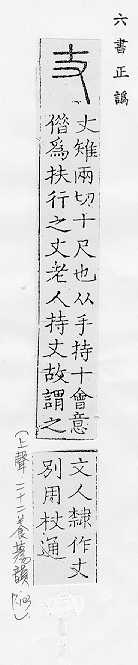 六書正譌
𠀋
丈雉兩切十尺也从手持十會意
僭爲扶行之丈老人持丈故謂之
丈人隸作丈
別用杖通
(上聲 二十二養蕩韻